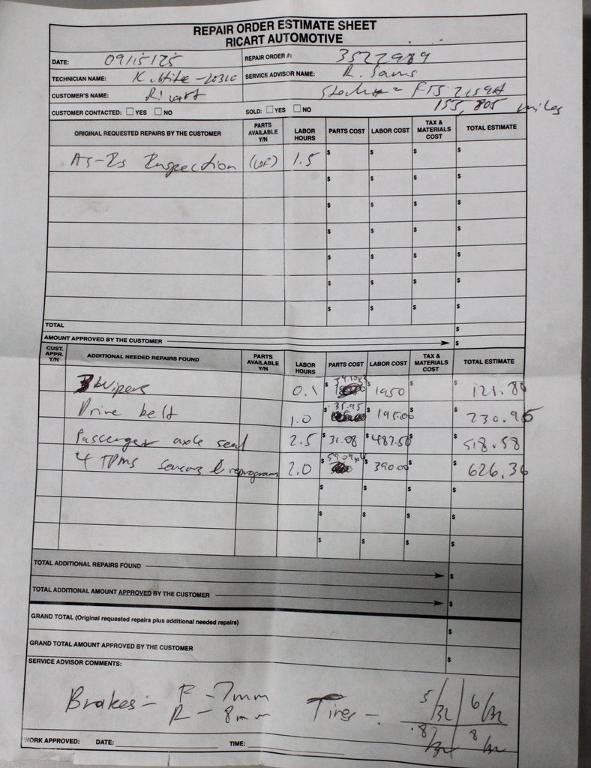 REPAIR ORDER ESTIMATE SHEET
RICART AUTOMOTIVE
DATE: 09/15/25 REPAIR ORDER #: 3522989
TECHNICIAN NAME: SERVICE ADVISOR NAME: R. Sams
CUSTOMER'S NAME: Ricart Stock #=
155,805 miles
CUSTOMER CONTACTED: YES NO SOLD: YES NO
ORIGINAL REQUESTED REPAIRS BY THE CUSTOMER PARTS AVAILABLE Y/N LABOR HOURS PARTS COST LABOR COST TAX & MATERIALS COST TOTAL ESTIMATE
As-Is Inspection (LOF) 1.5 $ $ $ $
$ $ $ $
$ $ $ $
$ $ $ $
$ $ $ $
$ $ $ $
$ $ $ $
TOTAL $
AMOUNT APPROVED BY THE CUSTOMER $
CUST. APPR. Y/N ADDITIONAL NEEDED REPAIRS FOUND PARTS AVAILABLE Y/N LABOR HOURS PARTS COST LABOR COST TAX & MATERIALS COST TOTAL ESTIMATE
Wipers 0.1 $ $ 19.50 $ $ 121.80
Drive belt 1.0 $ 35.95 $ 195.00 $ $ 230.95
Passenger axle seal 2.5 $ 31.08 $ 487.50 $ $ 518.58
4 TPMS sensors & reprogram 2.0 $ 59.09x4 $ 390.00 $ $ 626.36
$ $ $ $
$ $ $ $
$ $ $ $
TOTAL ADDITIONAL REPAIRS FOUND $
TOTAL ADDITIONAL AMOUNT APPROVED BY THE CUSTOMER $
GRAND TOTAL (Original requested repairs plus additional needed repairs) $
GRAND TOTAL AMOUNT APPROVED BY THE CUSTOMER $
SERVICE ADVISOR COMMENTS:
Brakes - F - 7mm Tires - 5/32 6/32
R - 8mm 8/32 8/32
WORK APPROVED: DATE: TIME: